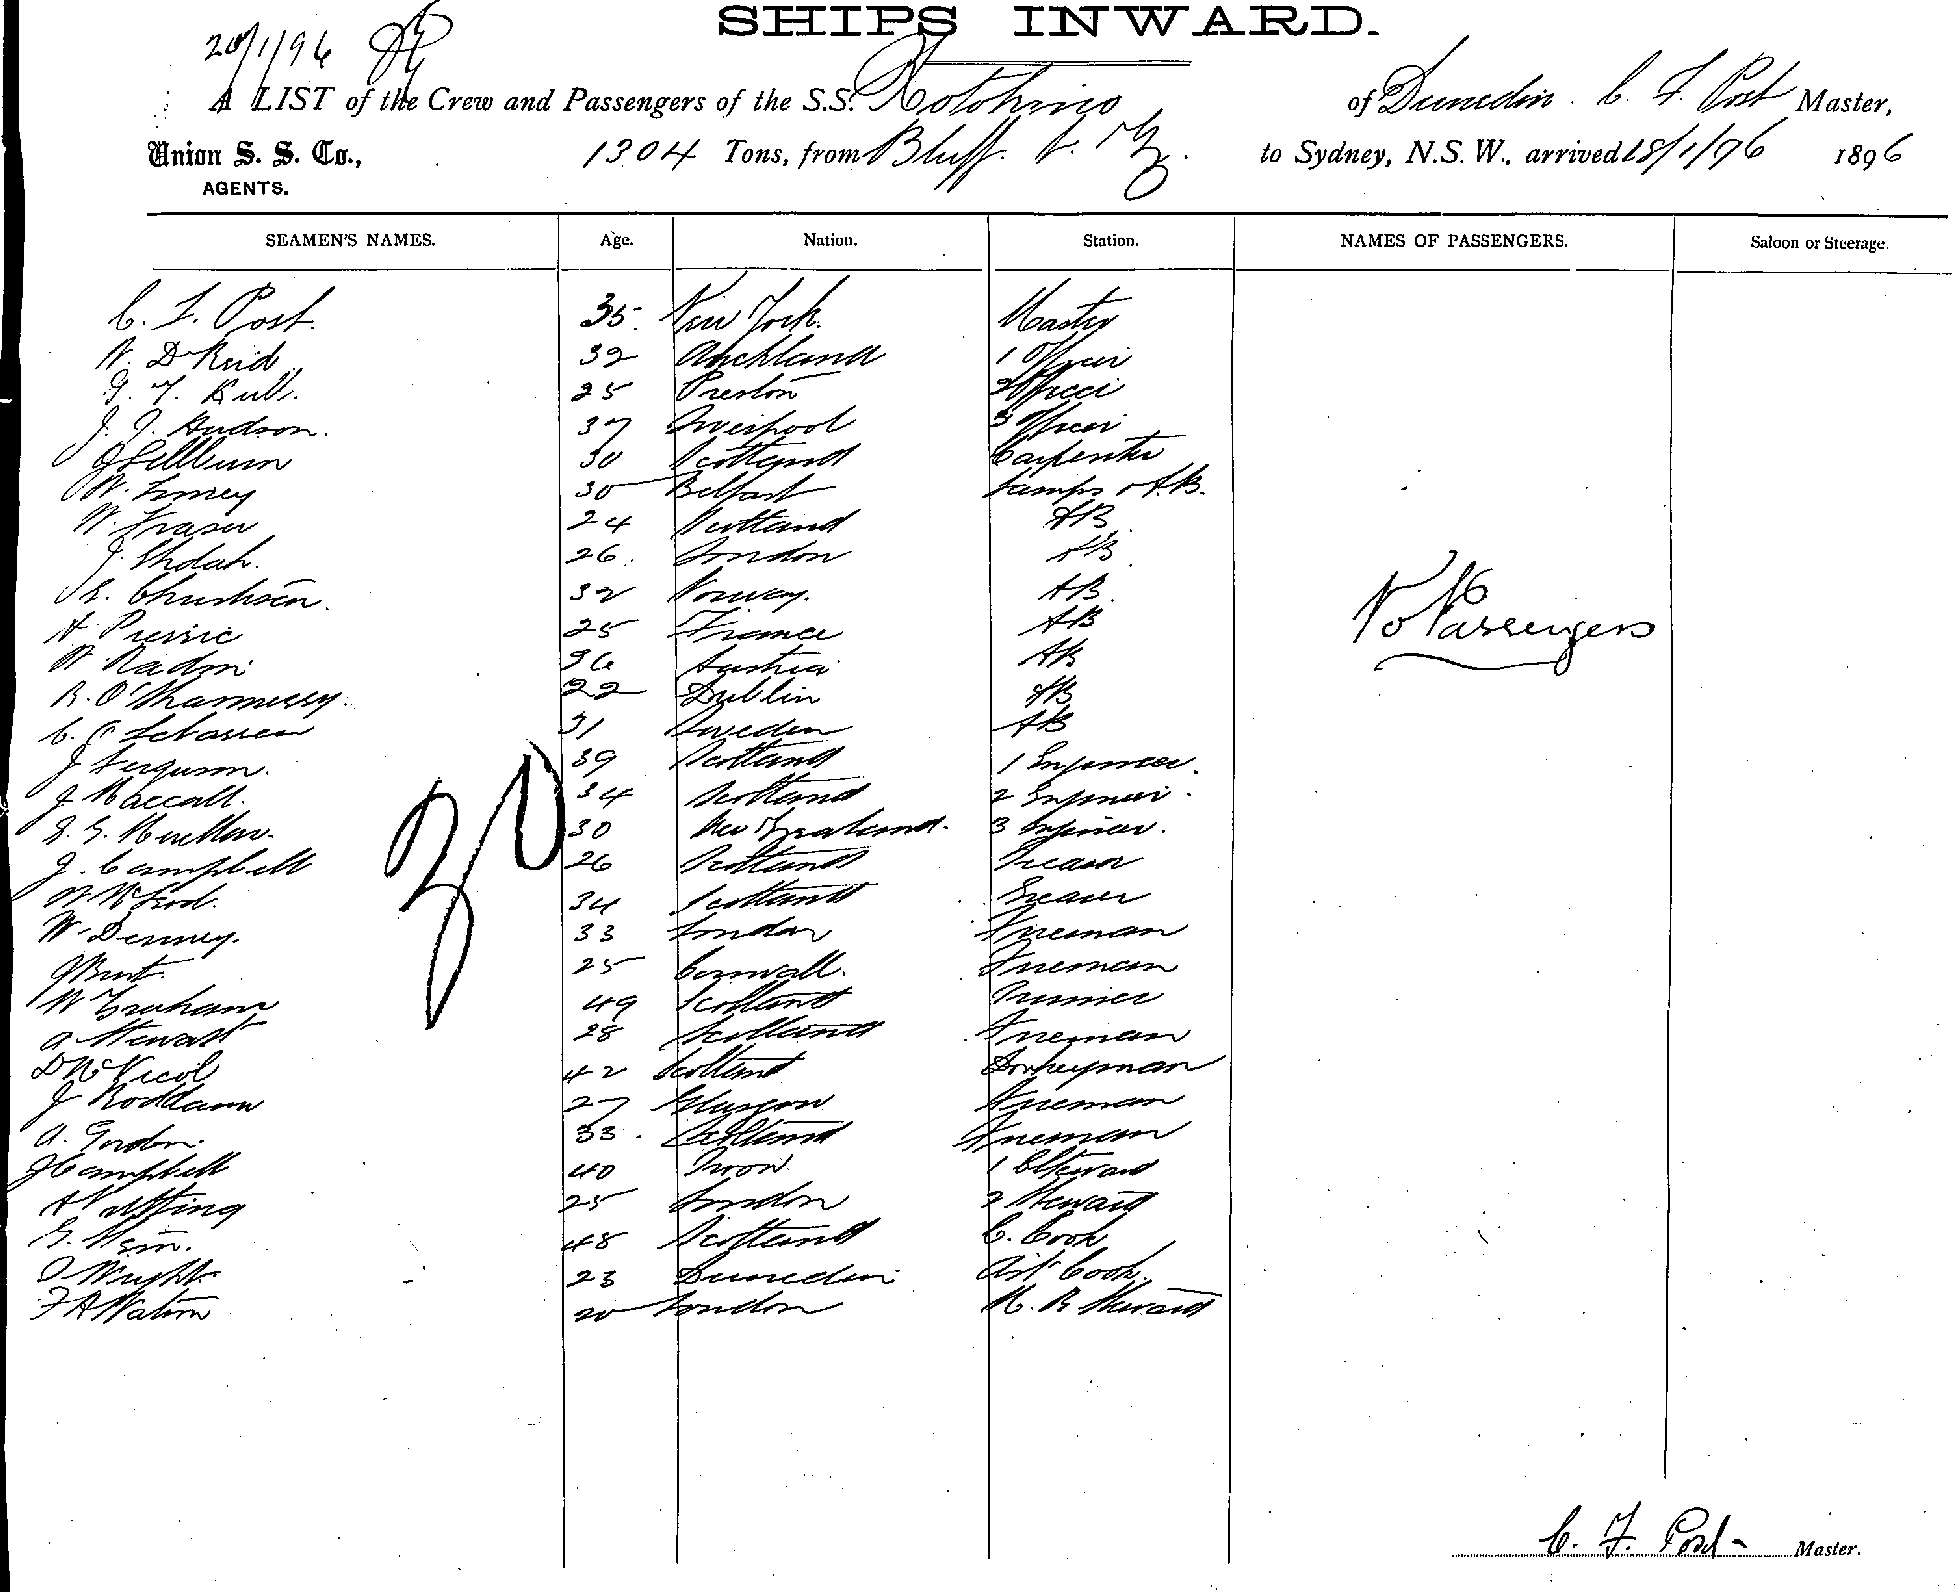 SHIPS INWARD.
20/1/96
A LIST of the Crew and Passengers of the S.S. Rotokino of Dunedin. C. F. Post Master,
Union S. S. Co., 1304 Tons, from Bluff. N. Z. to Sydney, N.S.W., arrived 18/1/96 1896
AGENTS.
SEAMEN'S NAMES. Age. Nation. Station. NAMES OF PASSENGERS. Saloon or Steerage.
C. F. Post. 35. New York. Master
W. D Reid 32 Auckland 1 Officer
25 Preston 2 Officer
J. J. Hudson. 37 Liverpool 3 Officer
30 Scotland Carpenter
W. 30 Belfast Lamps & A.B.
W. Fraser 24 Scotland AB
J. 26. London AB
32 Norway. AB
25 France AB
36 Austria AB
22 Dublin AB
31 Sweden AB
J Ferguson. 39 Scotland 1 Engineer.
J Maccall. 34 Scotland 2 Engineer.
30 New Zealand. 3 Engineer.
J. Campbell 26 Scotland Greaser
34 Scotland Greaser
W. Denney. 33 London Fireman
25 Cornwall. Fireman
W Graham 49 Scotland Trimmer
A Stewart 28 Scotland Fireman
D McNicol 42 Scotland Donkeyman
J Roddann 27 Glasgow Fireman
A. Gordon. 33. Scotland Fireman
J Campbell 40 1 C Steward
25 London 2 Steward
48 Scotland C. Cook
Wright 23 Dunedin Ast Cook.
F A Watson 20 London M. R Steward
30
No Passengers
C. F. Post Master.